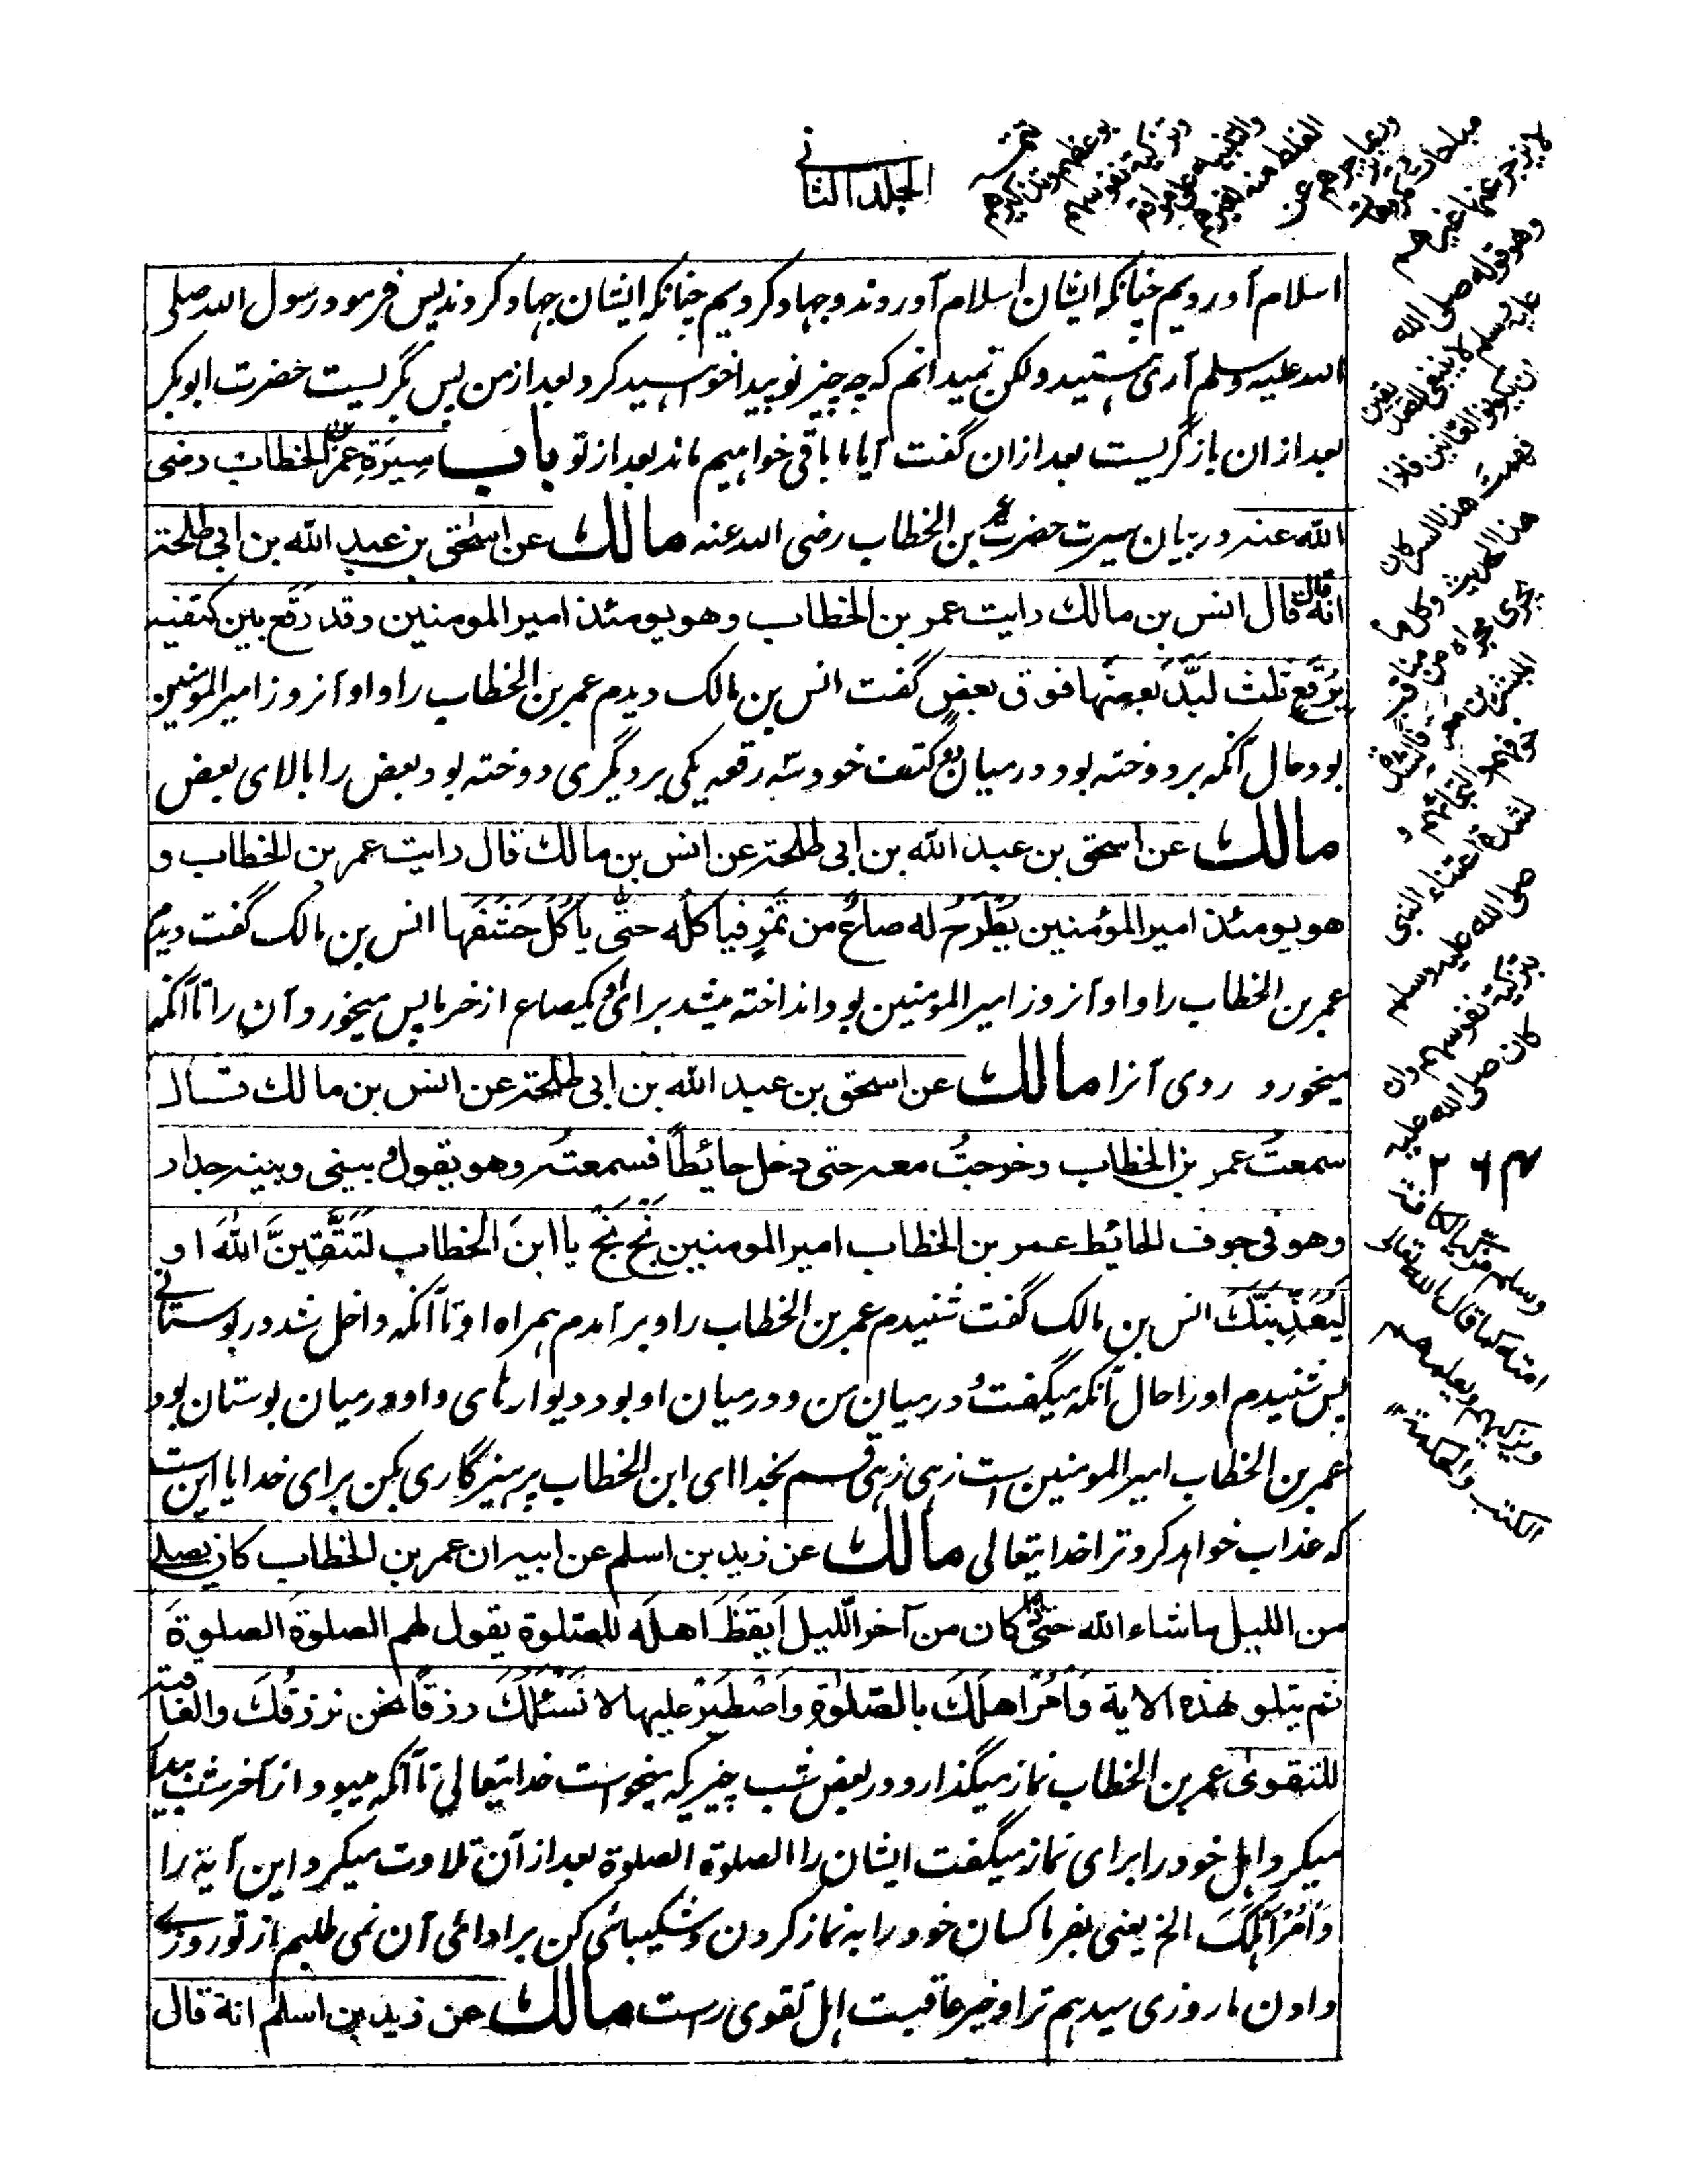 الجلد الثانی
اسلام آوردیم چنانکه ایشان اسلام آوردند وجهاد کردیم چنانکه ایشان جهاد کردند پس فرمود رسول الله صلی
الله علیه وسلم آری هستید ولکن نمیدانم که چه چیز نو پیدا خواهید کرد بعد از من پس گریست حضرت ابوبکر
بعد ازان باز گریست بعد ازان گفت آیا ما باقی خواهیم ماند بعد از تو باب سِیرَةِ عمر بن الخطاب رضی
الله عنه در بیان سیرت حضرت عمر بن الخطاب رضی الله عنه مالك عن اسحٰق بن عبد الله بن ابی طلحة
انه قال قال انس بن مالك رایت عمر بن الخطاب وهو یومئذ امیر المومنین وقد رَقَّع بین کتفیه
بِرُقَعٍ ثلث لَبَّدَ بعضَها فوق بعض گفت انس بن مالک دیدم عمر بن الخطاب را و او آنروز امیر المؤمنین
بود حال آنکه بر دوخته بود در میان هر دو کتف خود سه رقعه یکی بر دیگری دوخته بود بعض را بالای بعض
مالك عن اسحق بن عبد الله بن ابی طلحة عن انس بن مالك قال رایت عمر بن الخطاب و
هو یومئذ امیر المؤمنین یُطْرَحُ له صاعٌ من تَمْرٍ فیاکله حتّی یاکُلَ حَشَفَها انس بن مالک گفت دیدم
عمر بن الخطاب را و او آنروز امیر المومنین بود انداخته میشد برای او یکصاع از خرما پس میخورد آن را تا آنکه
میخورد ردی آنرا مالك عن اسحق بن عبد الله بن ابی طلحة عن انس بن مالك قال
سمعتُ عمر بن الخطاب وخرجتُ معه حتی دخل حائطًا فسمعتُه وهو یقول وبینی وبینه جدار
وهو فی جوف الحائط عمر بن الخطاب امیر المومنین بَخْ بَخْ یا ابنَ الخطاب لَتَتَّقِیَنَّ اللهَ او
لَیُعَذِّبَنَّكَ انس بن مالک گفت شنیدم عمر بن الخطاب را و برآمدم همراه او تا آنکه داخل شد در بوستانی
پس شنیدم او را حال آنکه میگفت و در میان من و در میان او بود دیوار های و او در میان بوستان بود
عمر بن الخطاب امیر المومنین است زهی زهی قسم بخدا ای ابن الخطاب پرهیزگاری بکن برای خدا یا این است
که عذاب خواهد کرد ترا خدایتعالی مالك عن زید بن اسلم عن ابیه ان عمر بن الخطاب کان یصلی
من اللیل ماشاء الله حتّی اذا کان من آخر اللّیل اَیقَظَ اهلَه للصّلوة یقول لهم الصلوةَ الصلوةَ
ثم یتلو هذه الایة وَأْمُرْ اهلَكَ بالصّلوٰةِ واصْطَبِرْ علیها لا نَسْئَلُكَ رزقًا نحن نرزقُكَ والعاقبة
للتقوٰی عمر بن الخطاب نماز میگذارد در بعض شب چیزیکه میخواست خدایتعالی تا آنکه میبود از آخر شب بیدار
میکرد اهل خود را برای نماز میگفت ایشان را الصلوة الصلوة بعد از آن تلاوت میکرد این آیة را
وَأْمُرْ اَهْلَكَ الخ یعنی بفرما کسان خود را به نماز کردن وشکیبائی کن بر ادائی آن نمی طلبم از تو روزی
دادن ما روزی میدهیم ترا وخیر عاقبت اهل تقوی راست مالك عن زید بن اسلم انه قال
لا ینزجر عنها غیرهم
وهو قوله صلی الله
علیه وسلم لا ینبغی
هذا الحدیث وکل ما
یجری مجراه من مناقب
لشدة اعتناء النبی
صلی الله علیه وسلم
بتزکیة نفوسهم وان
کان صلی الله علیه
وسلم مزکیا لکافة
امته کما قال الله تعالی
ویزکیهم ویعلمهم
الکتب والحکمة